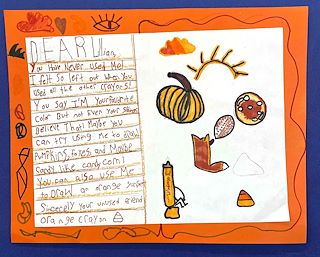 DEAR Lilian,
You Have Never Used Me!
I felt So left out when You
used all the other crayons!
You Say I'M Your favorite
Color But not Even Your
Believe That! Maybe you
can try using Me to draw
Pumpkins, foxes, and Maybe
Candy like candy corn!
You can also use Me
to Draw an orange
Sincerely your unused friend
orange crayon